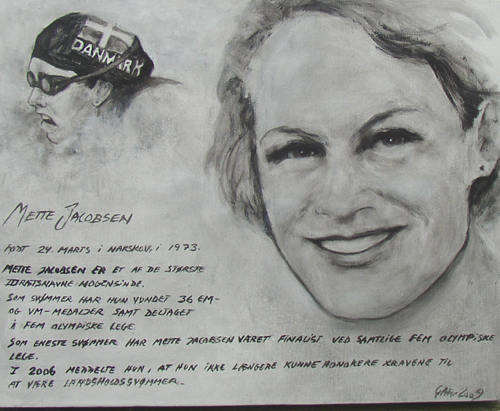 DANMARK
METTE JACOBSEN
FØDT 24. MARTS I NAKSKOV, I 1973.
METTE JACOBSEN ER ET AF DE STØRSTE
IDRÆTSNAVNE NOGENSINDE.
SOM SVØMMER HAR HUN VUNDET 36 EM-
OG VM-MEDALJER SAMT DELTAGET
I FEM OLYMPISKE LEGE.
SOM ENESTE SVØMMER HAR METTE JACOBSEN VÆRET FINALIST VED SAMTLIGE FEM OLYMPISKE
LEGE.
I 2006 MEDDELTE HUN, AT HUN IKKE LÆNGERE KUNNE HONORERE KRAVENE TIL
AT VÆRE LANDSHOLDSSVØMMER.